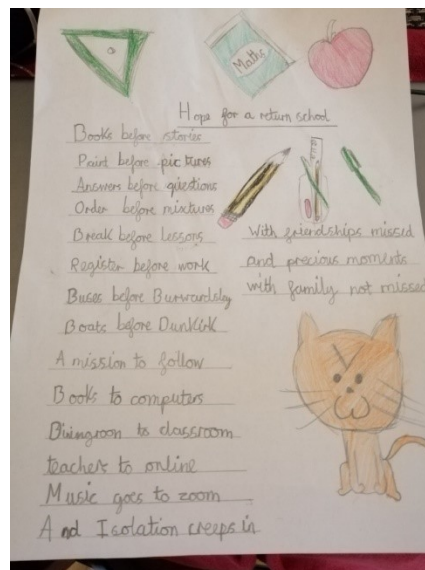 Maths
Hope for a return school
Books before stories
Paint before pictures
Answers before questions
Order before mixtures
Break before lessons
Register before work
Buses before Burwardsley
Boats before Dunkirk
A mission to follow
Books to computers
Diningroon to classroom
teachers to online
Music goes to zoom
And Isolation creeps in
With friendships missed
and precious moments
with family not missed